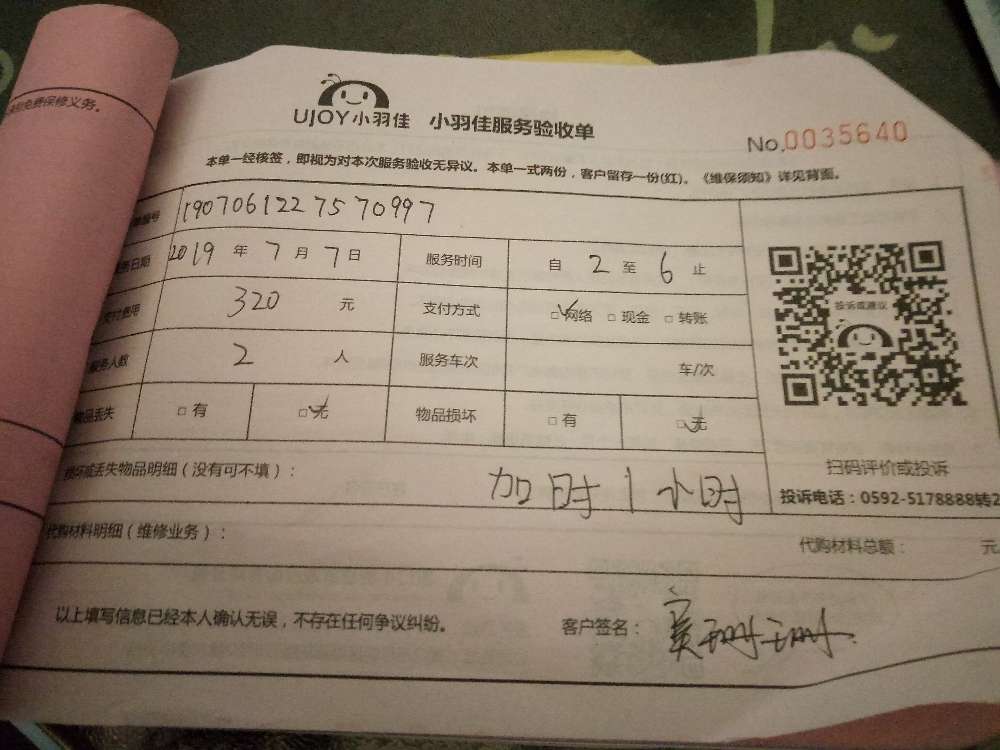 免费保修义务。
UJOY小羽佳 小羽佳服务验收单
No.0035640
本单一经核签，即视为对本次服务验收无异议。本单一式两份，客户留存一份(红)。《维保须知》详见背面。
编号 1907061227570997
务日期 2019 年 7 月 7 日 服务时间 自 2 至 6 止
支付费用 320 元 支付方式 □网络 □现金 □转账
服务人数 2 人 服务车次 车/次
物品丢失 □有 □无 物品损坏 □有 □无
投诉或建议
扫码评价或投诉
投诉电话：0592-5178888转2
损坏或丢失物品明细（没有可不填）： 加时1小时
代购材料明细（维修业务）： 代购材料总额： 元
以上填写信息已经本人确认无误，不存在任何争议纠纷。 客户签名：